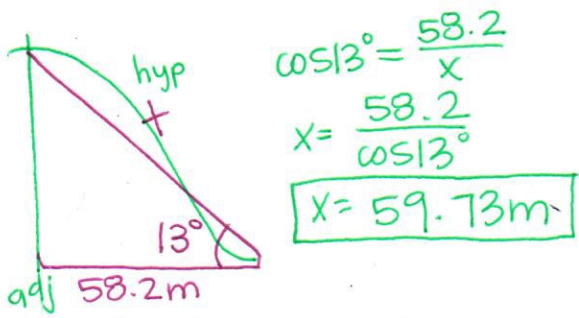 hyp
x
13°
adj 58.2m
cos13° = 58.2/x
x = 58.2/cos13°
x = 59.73m